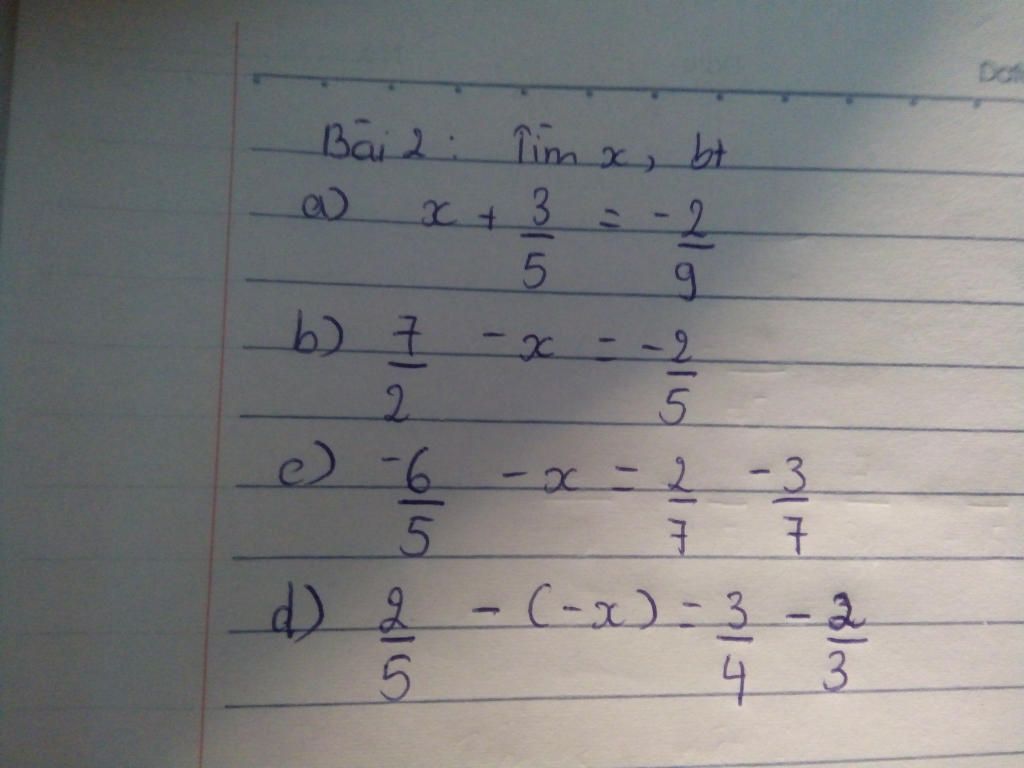 Bài 2: Tìm x, bt
a) x + 3/5 = -2/9
b) 7/2 - x = -2/5
c) -6/5 - x = 2/7 - 3/7
d) 2/5 - (-x) = 3/4 - 2/3